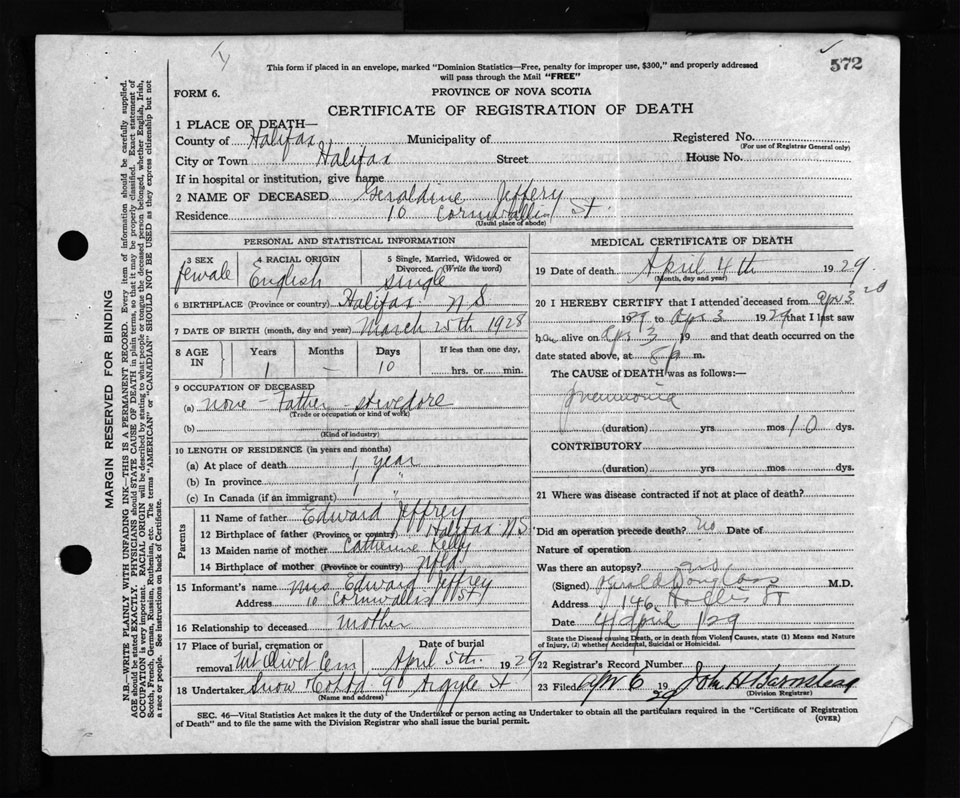 This form if placed in an envelope, marked "Dominion Statistics—Free, penalty for improper use, $300," and properly addressed
will pass through the Mail "FREE"
572
FORM 6.
PROVINCE OF NOVA SCOTIA
CERTIFICATE OF REGISTRATION OF DEATH
MARGIN RESERVED FOR BINDING
N.B.—WRITE PLAINLY WITH UNFADING INK—THIS IS A PERMANENT RECORD. Every item of information should be carefully supplied.
AGE should be stated EXACTLY. PHYSICIANS should STATE CAUSE OF DEATH in plain terms, so that it may be properly classified. Exact statement of
OCCUPATION is very important. RACIAL ORIGIN will be described by stating to what people or tongue the deceased person belonged, whether English, Irish,
Scotch, French, German, Russian, Ruthenian, etc. The terms "AMERICAN" or "CANADIAN" SHOULD NOT BE USED as they express citizenship but not
a race or people. See instructions on back of Certificate.
1 PLACE OF DEATH—
County of Halifax Municipality of Registered No.
(For use of Registrar General only)
City or Town Halifax Street House No.
If in hospital or institution, give name
2 NAME OF DECEASED Geraldine Jeffery
Residence 10 Cornwallis St.
(Usual place of abode)
PERSONAL AND STATISTICAL INFORMATION
3 SEX 4 RACIAL ORIGIN 5 Single, Married, Widowed or
Divorced. (Write the word)
female English single
6 BIRTHPLACE (Province or country) Halifax N S
7 DATE OF BIRTH (month, day and year) March 25th 1928
8 AGE IN Years Months Days If less than one day,
1 – 10 hrs. or min.
9 OCCUPATION OF DECEASED
(a) none - Father - stevedore
(Trade or occupation or kind of work)
(b)
(Kind of industry)
10 LENGTH OF RESIDENCE (in years and months)
(a) At place of death 1 year
(b) In province 1 "
(c) In Canada (if an immigrant)
Parents
11 Name of father Edward Jeffrey
12 Birthplace of father (Province or country) Halifax N.S
13 Maiden name of mother Catherine Kelly
14 Birthplace of mother (Province or country) Nfld.
15 Informant's name Mrs Edward Jeffrey
Address 10 Cornwallis St
16 Relationship to deceased mother
17 Place of burial, cremation or Date of burial
removal Mt Olivet Cem April 5th. 1929
18 Undertaker Snow & Co Ltd 90 Argyle St
MEDICAL CERTIFICATE OF DEATH
19 Date of death April 4th 1929
(Month, day and year)
20 I HEREBY CERTIFY that I attended deceased from Apr 3
1929 to Apr 3 1929 that I last saw
alive on Apr 3 19 and that death occurred on the
date stated above, at m.
The CAUSE of DEATH was as follows:—
Pneumonia
(duration) yrs mos 10 dys.
CONTRIBUTORY
(duration) yrs mos dys.
21 Where was disease contracted if not at place of death?
Did an operation precede death? no Date of
Nature of operation
Was there an autopsy? no
(Signed) M.D.
Address 146 Hollis St
Date 4 April /29
State the Disease causing Death, or in death from Violent Causes, state (1) Means and Nature
of Injury, (2) whether Accidental, Suicidal or Homicidal.
22 Registrar's Record Number
23 Filed Apr 6 1929 John H Barnstead
(Division Registrar)
SEC. 46—Vital Statistics Act makes it the duty of the Undertaker or person acting as Undertaker to obtain all the particulars required in the "Certificate of Registration
of Death" and to file the same with the Division Registrar who shall issue the burial permit.
(OVER)